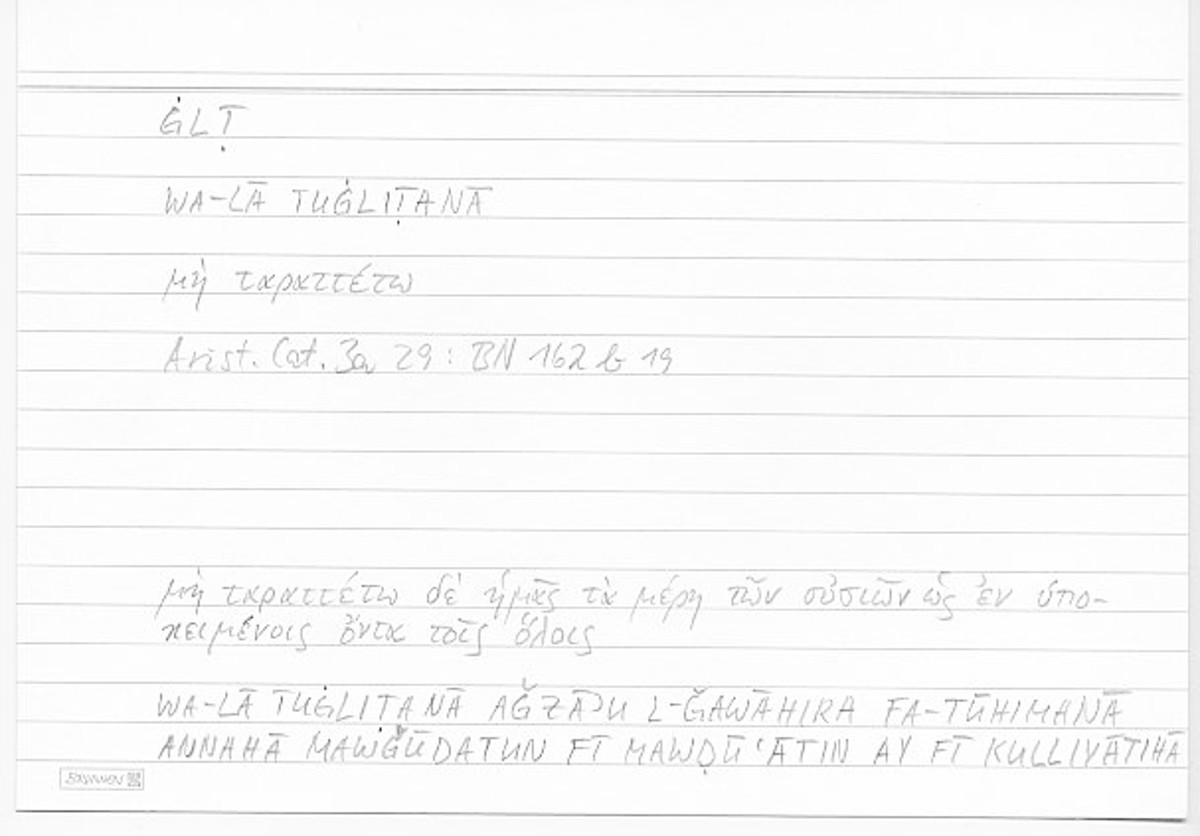 ĠLṬ
WA-LĀ TUĠLIṬANĀ
μὴ ταραττέτω
Arist. Cat. 3a 29 : BN 162 b 19
μὴ ταραττέτω δὲ ἡμᾶς τὰ μέρη τῶν οὐσιῶν ὡς ἐν ὑπο-
κειμένοις ὄντα τοῖς ὅλοις
WA-LĀ TUĠLITANĀ AǦZĀʾU L-ǦAWĀHIRA FA-TŪHIMANĀ
ANNAHĀ MAWǦŪDATUN FĪ MAWḌŪʿĀTIN AY FĪ KULLIYĀTIHĀ